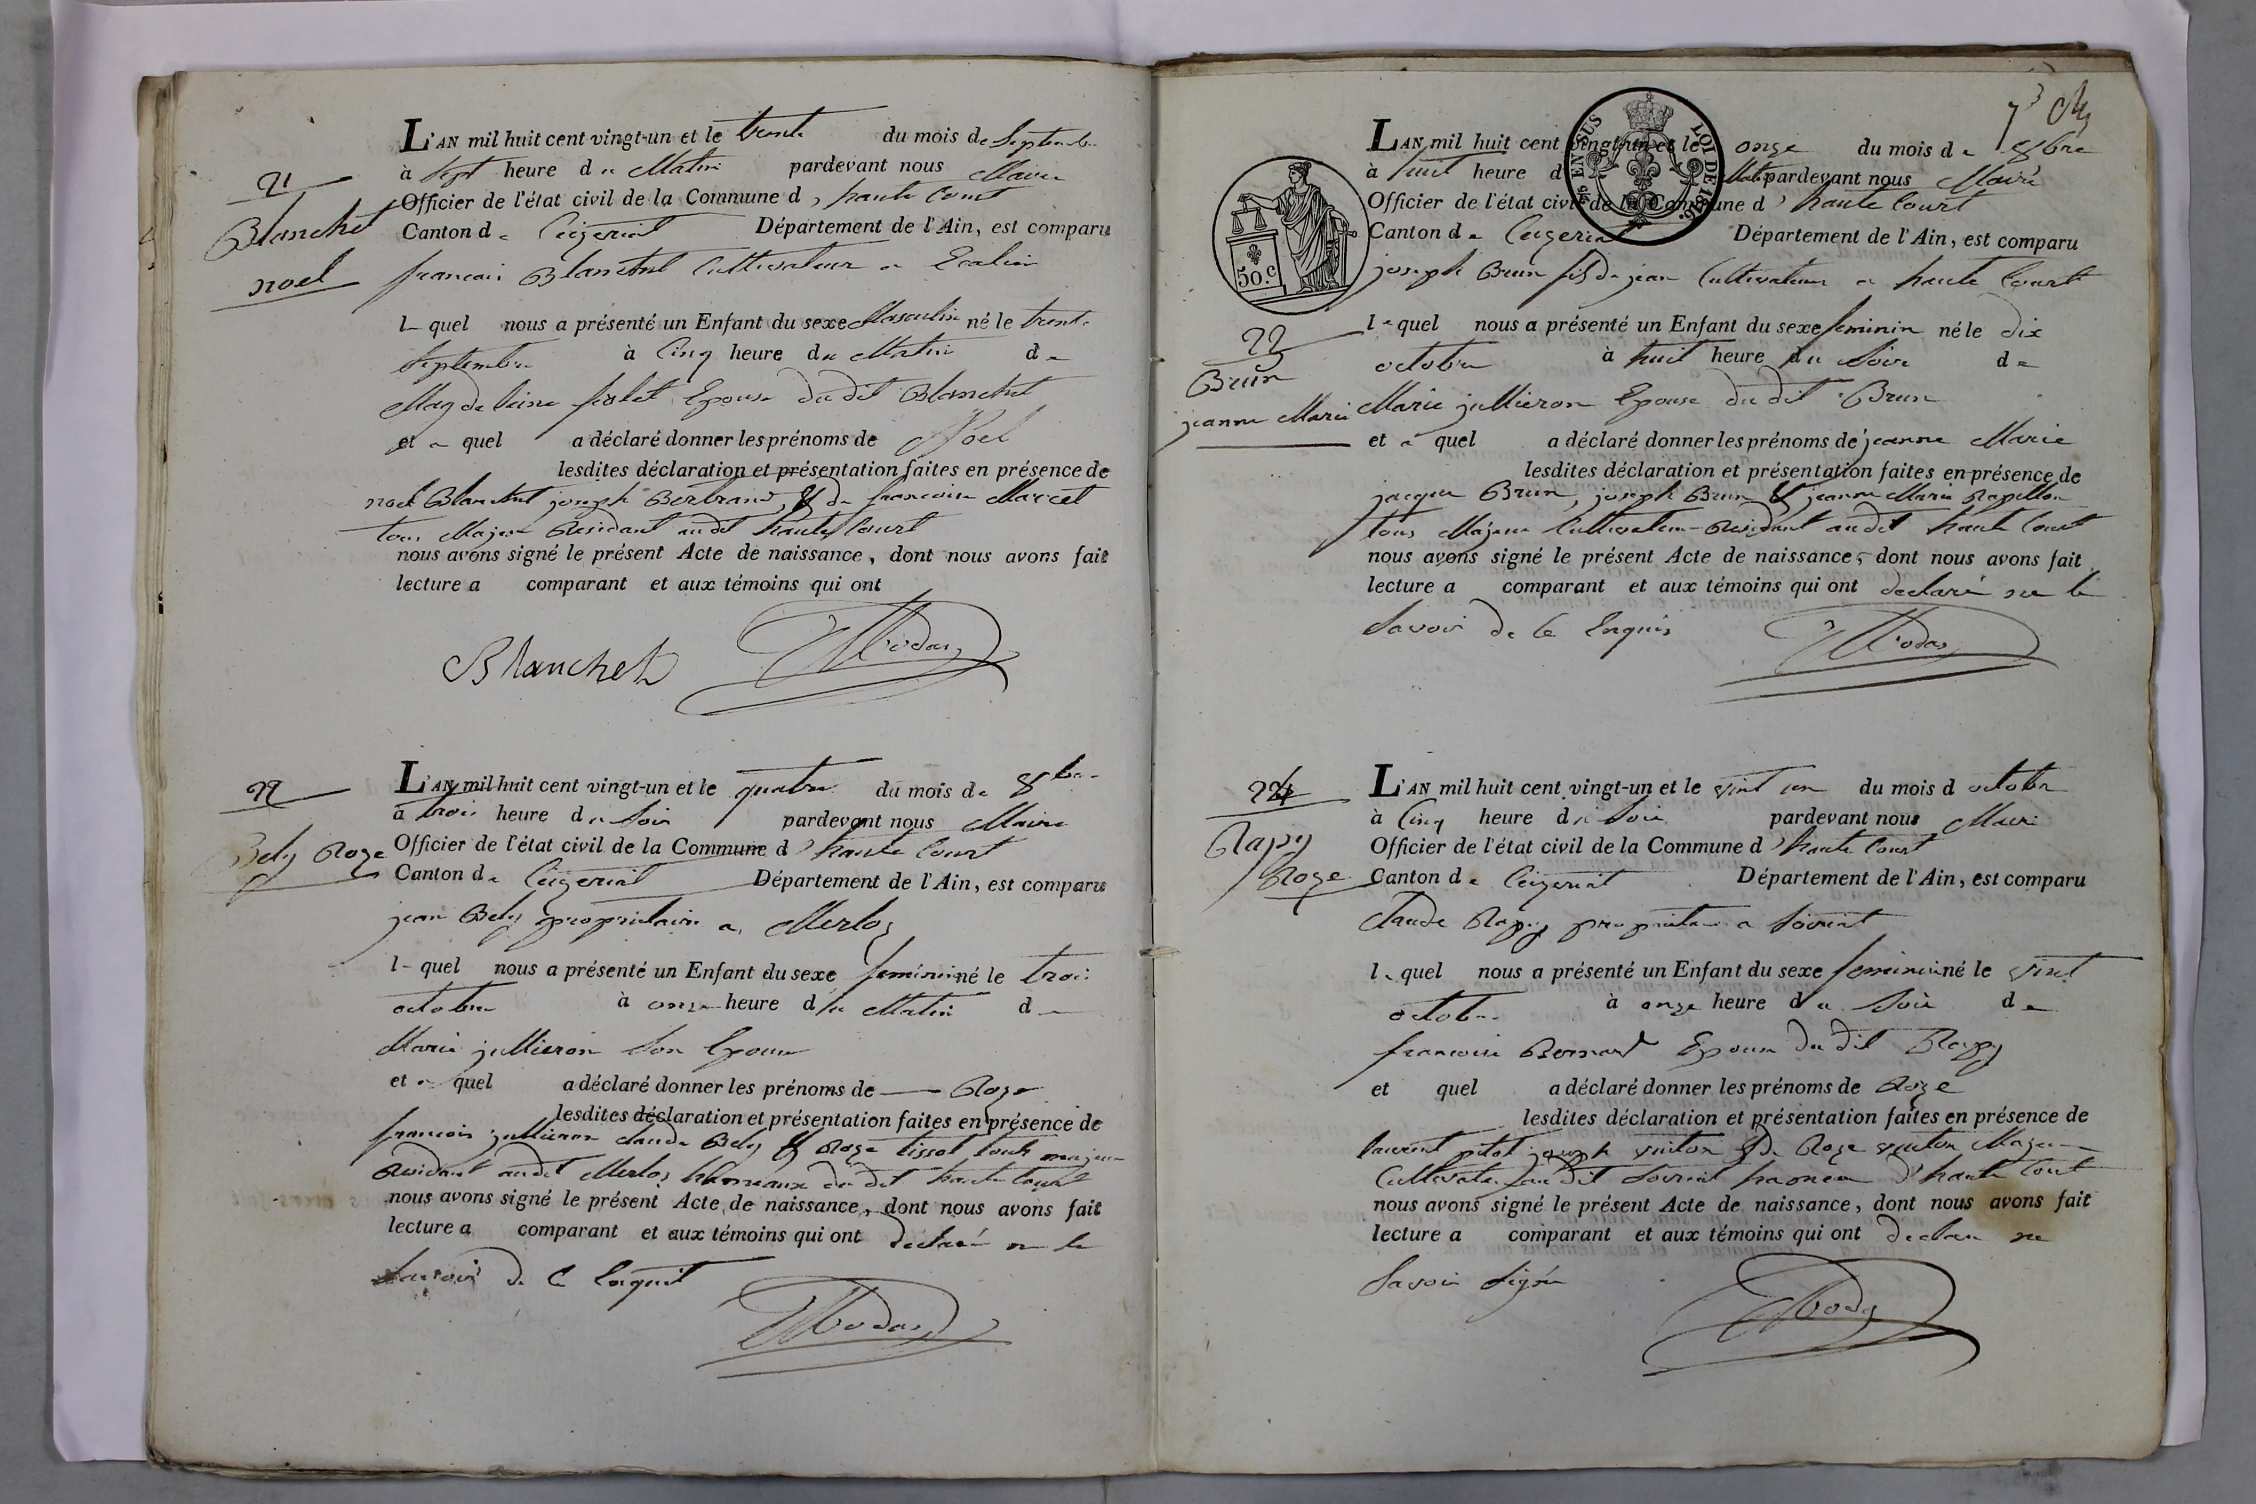 21
Blanchet
noel
L'AN mil huit cent vingt-un et le trente du mois de Septembre
à Sept heure du Matin pardevant nous Maire
Officier de l'état civil de la Commune d' haute Court
Canton de Ceyzeriat Département de l'Ain, est comparu
francois Blanchet Cultivateur a
le quel nous a présenté un Enfant du sexe Masculin né le trente
Septembre à Cinq heure du Matin de
Magdeleine Epouse du dit Blanchet
et a quel a déclaré donner les prénoms de Noel
lesdites déclaration et présentation faites en présence de
noel Blanchet joseph Bertrand & de francoise Marcet
tous Majeur Residant audit haute Court
nous avons signé le présent Acte de naissance, dont nous avons fait
lecture a comparant et aux témoins qui ont
Blanchet
22
Bely Roze
L'AN mil huit cent vingt-un et le quatre du mois de 8bre
à trois heure du Soir pardevant nous Maire
Officier de l'état civil de la Commune d' haute Court
Canton de Ceyzeriat Département de l'Ain, est comparu
jean Bely propriétaire a Merloz
le quel nous a présenté un Enfant du sexe feminin né le trois
octobre à onze heure du Matin de
Marie jullieron Son Epouse
et a quel a déclaré donner les prénoms de Roze
lesdites déclaration et présentation faites en présence de
francois jullieron claude Bely & Roze tissot touts majeur
Residant audit Merloz hameaux du dit haute Court
nous avons signé le présent Acte de naissance, dont nous avons fait
lecture a comparant et aux témoins qui ont declaré ne le
Savoir de ce Enquit
73
L'AN mil huit cent vingt-un et le onze du mois de 8bre
à huit heure du Matin pardevant nous Maire
Officier de l'état civil de la Commune d' haute Court
Canton de Ceyzeriat Département de l'Ain, est comparu
EN SUS
LOI DE 1816.
50.c
joseph Brun fils de jean Cultivateur a haute Court
23
Brun
jeanne Marie
le quel nous a présenté un Enfant du sexe feminin né le dix
octobre à huit heure du Soir de
Marie jullieron Epouse du dit Brun
et a quel a déclaré donner les prénoms de jeanne Marie
lesdites déclaration et présentation faites en présence de
jacque Brun, joseph Brun & jeanne Marie Rapillon
tous Majeur Cultivateur Residant audit haute Court
nous avons signé le présent Acte de naissance, dont nous avons fait
lecture a comparant et aux témoins qui ont declaré ne le
Savoir de ce Enquis
24
Rapy
Roze
L'AN mil huit cent vingt-un et le vint un du mois d octobre
à Cinq heure du Soir pardevant nous Maire
Officier de l'état civil de la Commune d' haute Court
Canton de Ceyzeriat Département de l'Ain, est comparu
Claude Rapy propriétaire a Sovriat
le quel nous a présenté un Enfant du sexe feminin né le vint
octobre à onze heure du Soir de
francoise Bernard Epouse du dit Rapy
et quel a déclaré donner les prénoms de Roze
lesdites déclaration et présentation faites en présence de
laurent pitot joseph vuiton & de Roze vuiton Majeur
Cultivateur au dit Sovriat hameau d'haute Court
nous avons signé le présent Acte de naissance, dont nous avons fait
lecture a comparant et aux témoins qui ont declare ne
Savoir Signer